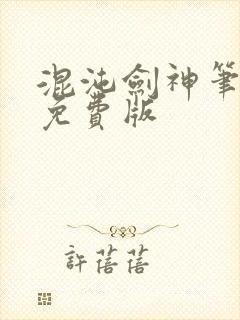 混沌劍神筆
免費版
許蓓蓓